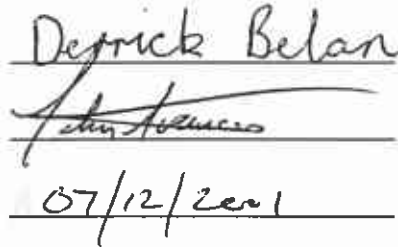 Derrick Belan
07/12/2001